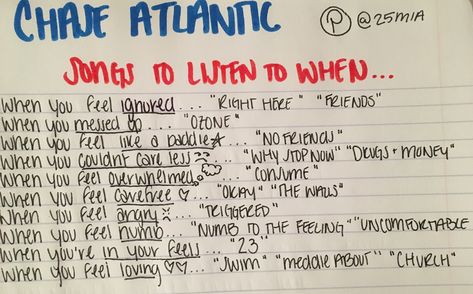 CHASE ATLANTIC
@25MIA
SONGS TO LISTEN TO WHEN...
When you feel ignored... "RIGHT HERE" "FRIENDS"
When you messed up... "OZONE"
When you feel like a baddie... "NO FRIENDS"
When you couldn't care less... "WHY STOP NOW" "DRUGS + MONEY"
When you feel overwhelmed... "CONSUME"
When you feel carefree... "OKAY" "THE WALLS"
When you feel angry... "TRIGGERED"
When you feel numb... "NUMB TO THE FEELING" "UNCOMFORTABLE
When you're in your feels... "23"
When you feel loving... "SWIM" "meddle ABOUT" "CHURCH"